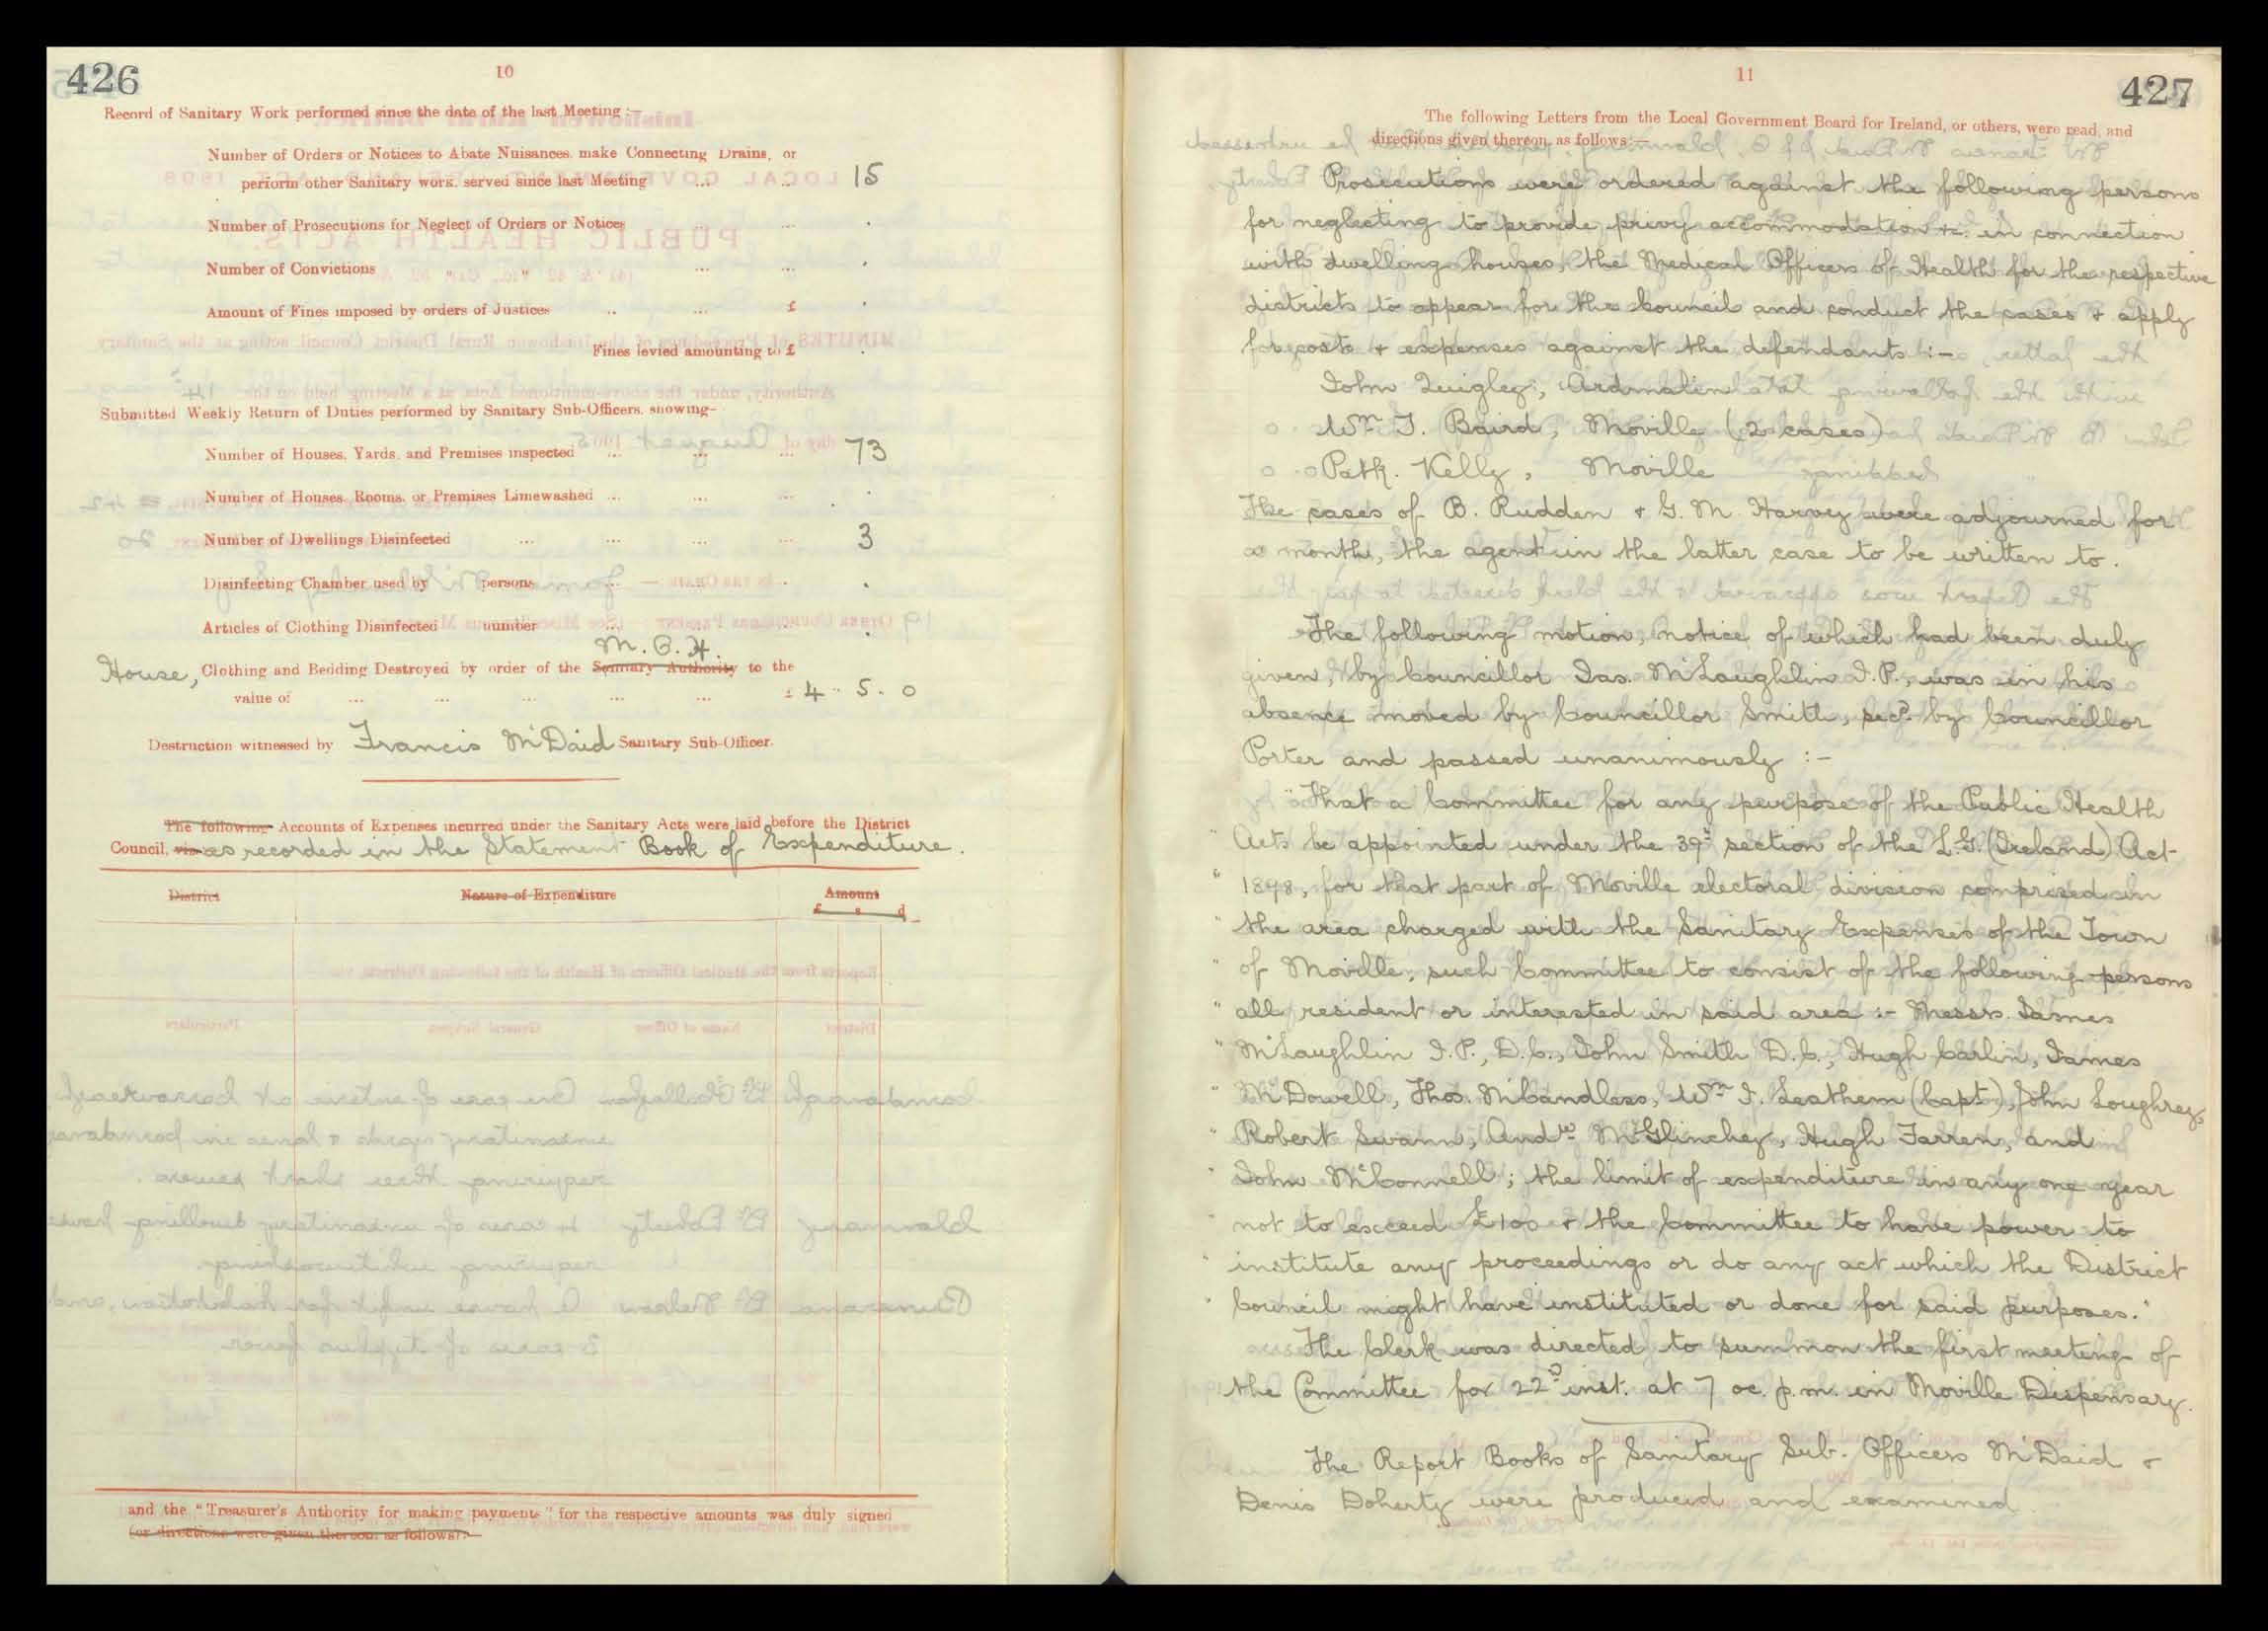 426
10
Record of Sanitary Work performed since the date of the last Meeting :—
Number of Orders or Notices to Abate Nuisances, make Connecting Drains, or
perform other Sanitary work, served since last Meeting ... ... 15
Number of Prosecutions for Neglect of Orders or Notices ... .
Number of Convictions " ... ... .
Amount of Fines imposed by orders of Justices .. ... £ .
Fines levied amounting to £ .
Submitted Weekly Return of Duties performed by Sanitary Sub-Officers, showing—
Number of Houses, Yards, and Premises inspected ... ... ... 73
Number of Houses, Rooms, or Premises Limewashed ... ... ... .
Number of Dwellings Disinfected ... ... ... ... 3
Disinfecting Chamber used by persons ... ... .. .
Articles of Clothing Disinfected number ... ... .. .
M.O.H.
House, Clothing and Bedding Destroyed by order of the Sanitary Authority to the
value of ... ... ... ... ... £ 4 .. 5 . 0
Destruction witnessed by Francis McDaid Sanitary Sub-Officer.
The following Accounts of Expenses incurred under the Sanitary Acts were laid before the District
Council, viz as recorded in the Statement Book of Expenditure.
District Nature of Expenditure Amount
£ s d
and the "Treasurer's Authority for making payments" for the respective amounts was duly signed
(or directions were given thereon as follows):—
427
11
The following Letters from the Local Government Board for Ireland, or others, were read, and
directions given thereon, as follows:—
Prosecutions were ordered against the following persons
for neglecting to provide privy accommodation &c. in connection
with dwelling houses, the Medical Officers of Health for the respective
districts to appear for the Council and conduct the cases & apply
for costs & expenses against the defendants :—
John Quigley, Ardmalin
Wm J. Baird, Moville (2 cases)
Patk. Kelly, Moville
The cases of B. Rudden & G. M. Harvey were adjourned for
a month, the agent in the latter case to be written to.
The following motion, notice of which had been duly
given, by Councillor Jas. McLaughlin J.P., was in his
absence moved by Councillor Smith, secd. by Councillor
Porter and passed unanimously :—
"That a Committee for any purpose of the Public Health
" Acts be appointed under the 39th section of the L.G. (Ireland) Act
" 1898, for that part of Moville electoral division comprised in
" the area charged with the Sanitary Expenses of the Town
" of Moville, such Committee to consist of the following persons
" all resident or interested in said area :- Messrs. James
" McLaughlin J.P., D.C., John Smith D.C., Hugh Carlin, James
" McDowell, Thos. McCandless, Wm J. Leathem (Capt), John Loughrey,
" Robert Swann, Andw McGlinchey, Hugh Farren, and
" John McConnell; the limit of expenditure in any one year
" not to exceed £100 & the Committee to have power to
" institute any proceedings or do any act which the District
" Council might have instituted or done for said purposes."
The Clerk was directed to summon the first meeting of
the Committee for 22d inst. at 7 oc. p.m. in Moville Dispensary.
The Report Books of Sanitary Sub. Officers McDaid &
Denis Doherty were produced and examined